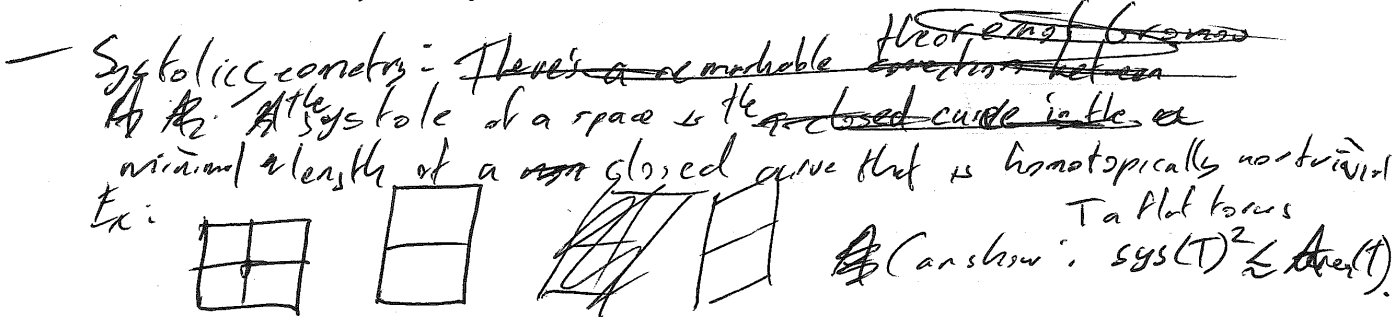 — Systolic Geometry: There's a remarkable theorem of Gromov connection between
the systole of a space is the a closed curve in the
minimal length of a closed curve that is homotopically nontrivial
Ex:
T a flat torus
Can show: sys(T)² ≲ Area(T).